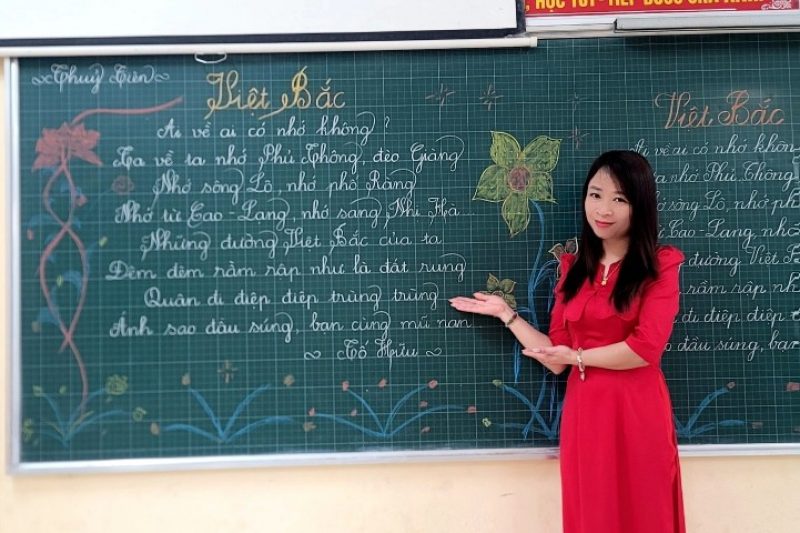 HỌC TỐT - TIẾP BƯỚC CHA ANH
Thuỷ Tiên
Việt Bắc
Ai về ai có nhớ không ?
Ta về ta nhớ Phủ Thông, đèo Giàng
Nhớ sông Lô, nhớ phố Ràng
Nhớ từ Cao-Lạng, nhớ sang Nhị Hà...
Những đường Việt Bắc của ta
Đêm đêm rầm rập như là đất rung
Quân đi điệp điệp trùng trùng
Ánh sao đầu súng, bạn cùng mũ nan
Tố Hữu
Việt Bắc
Ai về ai có nhớ khôn
ta nhớ Phủ Thông
sông Lô, nhớ ph
Cao-Lạng, nh
đường Việt B
rầm rập nh
đi điệp điệp
đầu súng, bạn